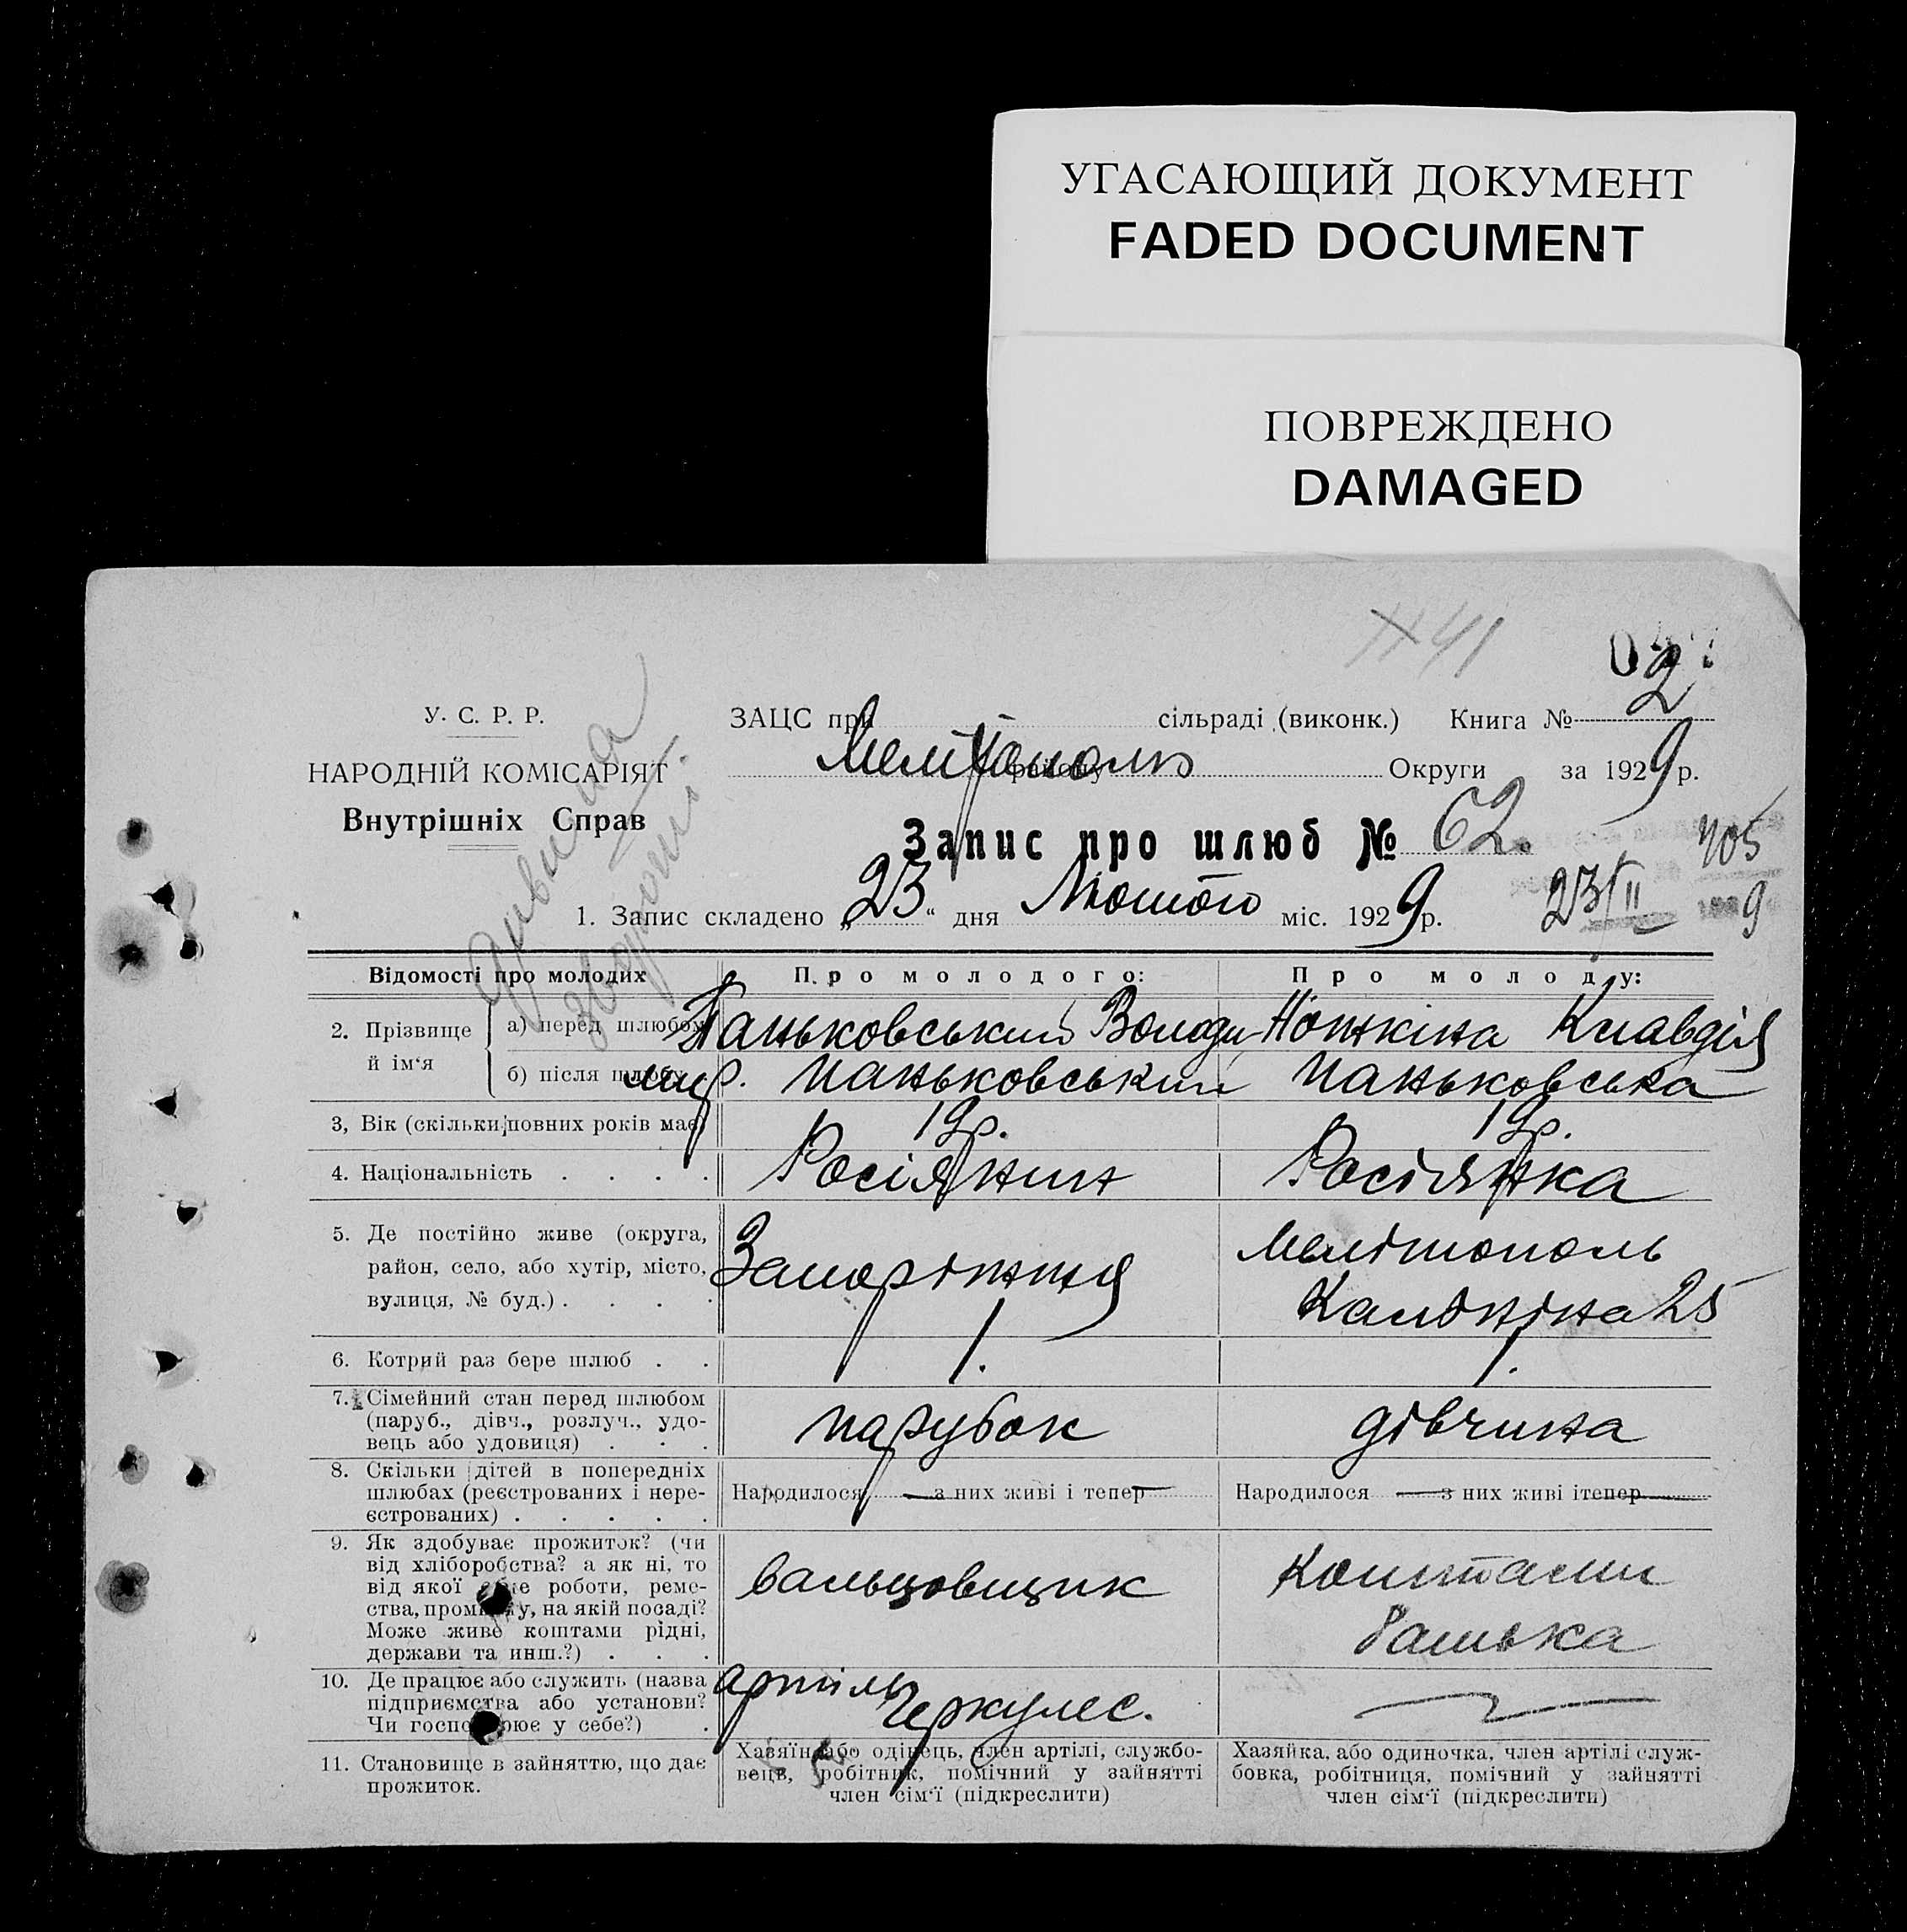 УГАСАЮЩИЙ ДОКУМЕНТ
FADED DOCUMENT
ПОВРЕЖДЕНО
DAMAGED
№ 41
У. С. Р. Р.
НАРОДНІЙ КОМІСАРІЯТ
Внутрішніх Справ
Дивись на звороті.
ЗАЦС при сільраді (виконк.) Книга № 2
Мелітополь району Округи за 1929 р.
Запис про шлюб № 62.
1. Запис складено „23“ дня Лютого міс. 1929 р.
23/II 9
Відомості про молодих
Про молодого:
Про молоду:
2. Прізвище й ім‘я
а) перед шлюбом
Паньковський Володи
Ножкіна Клавдія
б) після шлюбу
мир. Паньковський
Паньковська
3, Вік (скільки повних років має)
19 р.
19 р.
4. Національність . . . .
Росіянин
Росіянка
5. Де постійно живе (округа,
район, село, або хутір, місто,
вулиця, № буд.) . . . .
Запоріжжя
Мелітополь
Калініна 25
6. Котрий раз бере шлюб . .
1.
1.
7. Сімейний стан перед шлюбом
(паруб., дівч., розлуч., удо-
вець або удовиця) . . .
парубок
дівчина
8. Скільки дітей в попередніх
шлюбах (реєстрованих і нере-
єстрованих) . . . . .
Народилося — з них живі і тепер —
Народилося — з них живі ітепер —
9. Як здобуває прожиток? (чи
від хліборобства? а як ні, то
від якої роботи, реме-
ства, промислу, на якій посаді?
Може живе коштами рідні,
держави та инш.?) . . .
вальцовщик
Коштами
батька
10. Де працює або служить (назва
підприємства або установи?
Чи господарює у себе?) .
артіль
Геркулес.
11. Становище в зайняттю, що дає
прожиток.
Хазяїн або одінець, член артілі, службо-
вець, робітник, помічний у зайнятті
член сім‘ї (підкреслити)
Хазяйка, або одиночка, член артілі служ-
бовка, робітниця, помічний у зайнятті
член сім‘ї (підкреслити)